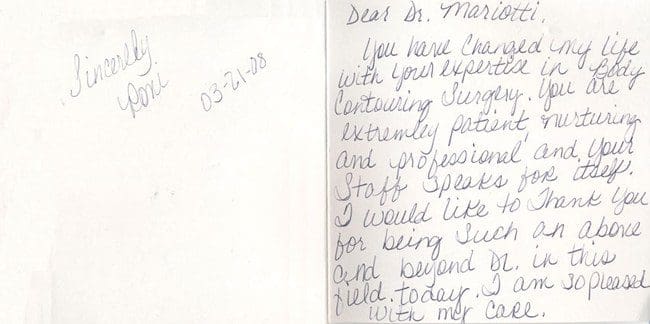 Dear Dr. Mariotti,
You have changed my life
with your expertise in Body
Contouring Surgery. You are
extremley patient, nurturing
and professional and your
Staff speaks for itself.
I would like to Thank You
for being such an above
and beyond Dr. in this
field today. I am so pleased
with my care.
Sincerely,
03-21-08